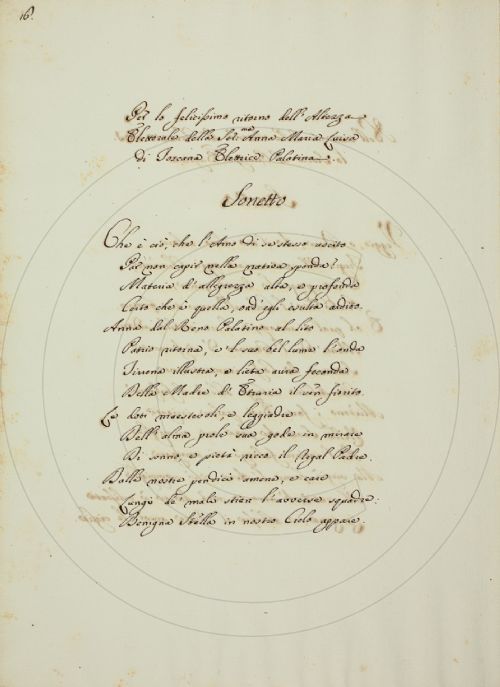 16.
Per lo felicissimo ritorno dell'Altezza
Elettorale della Ser.ma Anna Maria Luisa
di Toscana Elettrice Palatina
Sonetto
Che è ciò, che l'Arno di se stesso uscito
Par non capir nella nativa sponda?
Materia d'allegrezza alta, e profonda
Certo che è quella, ond'egli esulta ardito.
Anna dal Reno Palatino al lito
Patrio ritorna, e 'l suo bel lume l'onda
Tirrena illustra, e lieta aura feconda
Della Madre d'Etruria il sen fiorito.
Le doti maestevoli, e leggiadre
Dell'alma prole sua gode in mirare
Di senno, e pietà ricco il Regal Padre.
Dalle nostre pendici amene, e care
Lungi de' mali stien l'avverse squadre:
Benigna Stella in nostro Cielo appare.